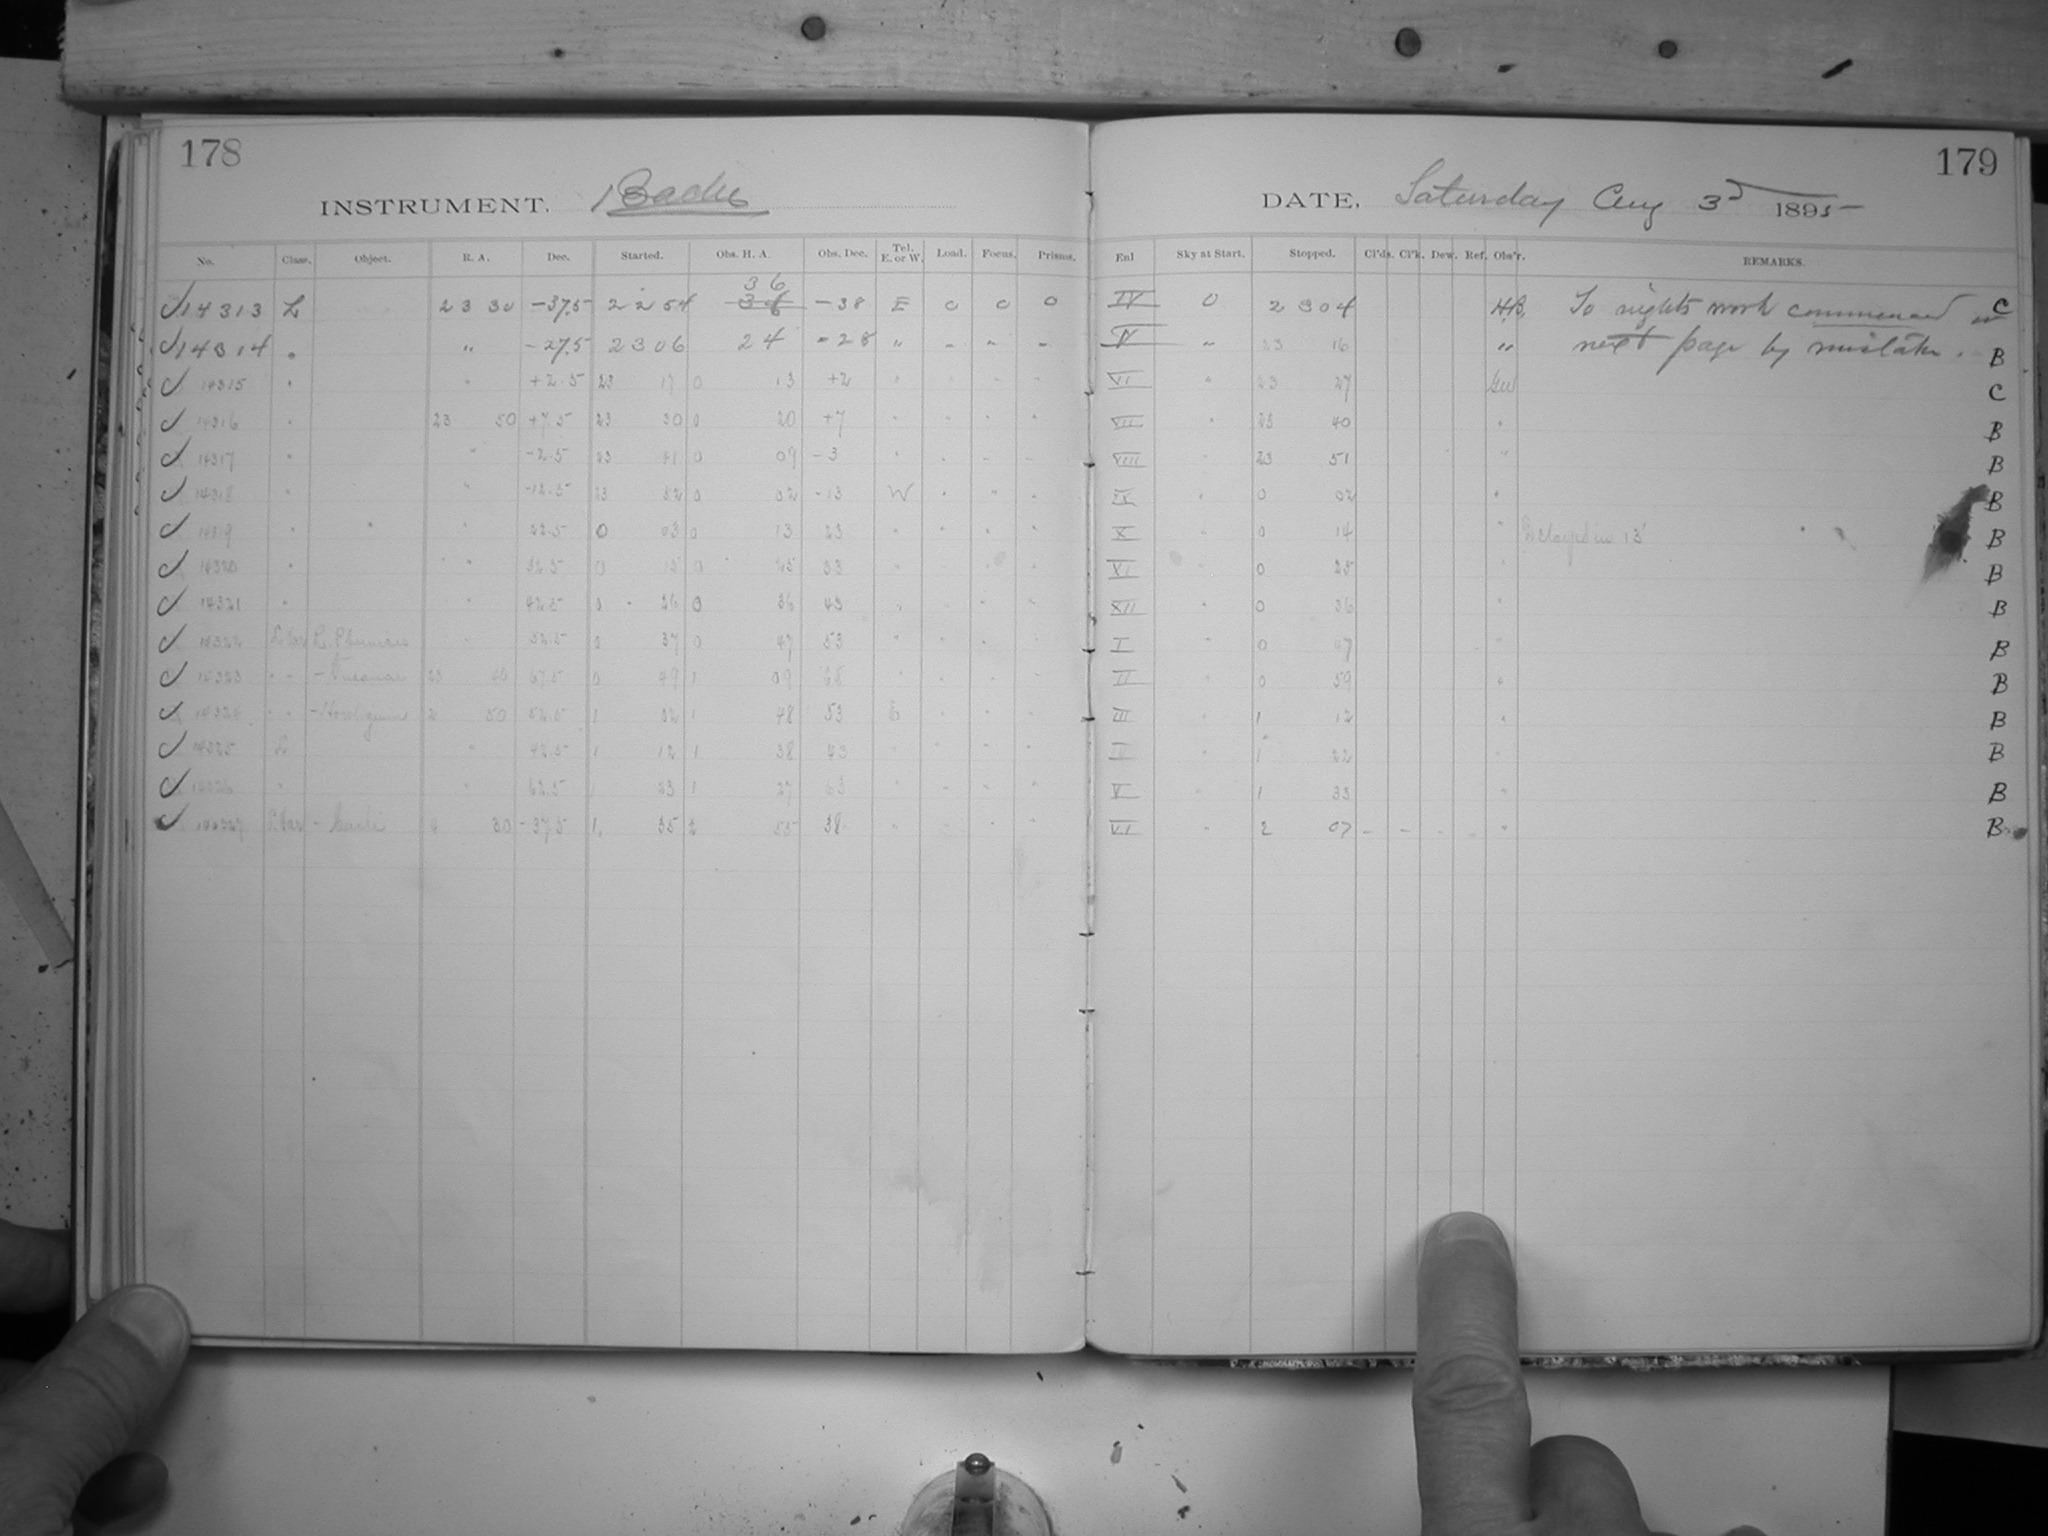 178
INSTRUMENT. Bache
No. Class. Object. R. A. Dec. Started. Obs. H. A. Obs. Dec. Tel. E. or W. Load. Focus. Prisms.
36
14313 L 23 30 -37.5 22 54 -38 E 0 0 0
14314 " " -27.5 2306 24 -28 " " " "
14315 " " +2.5 23 17 0 13 +2 " " " "
14316 " 23 50 +7.5 23 30 0 20 +7 " " " "
14317 " " -2.5 23 41 0 09 -3 " " " "
14318 " " -12.5 23 52 0 02 -13 W " " "
14319 " " " 22.5 0 03 0 13 23 " " " "
14320 " " 32.5 0 15 0 25 33 " " " "
14321 " " 42.5 0 26 0 36 43 " " " "
14322 L. Var " 52.5 0 37 0 47 53 " " " "
14323 " " 23 40 67.5 0 49 1 09 68 " " " "
14324 " " 2 50 52.5 1 02 1 48 53 E " " "
14325 L " 42.5 1 12 1 38 43 " " " "
14326 " " 62.5 1 23 1 27 63 " " " "
14327 L. Var 4 30 -37.5 1 35 2 55 38 " " " "
179
DATE, Saturday Aug 3d 1895
Enl Sky at Start. Stopped. Cl'ds. Cl'k. Dew. Ref. Obs'r. REMARKS.
IV 0 2304 To nights work commenced on C
V " 23 16 " next page by mistake. B
VI " 23 27 C
VII " 23 40 " B
VIII " 23 51 " B
IX " 0 02 " B
X " 0 14 " B
XI " 0 25 " B
XII " 0 36 " B
I " 0 47 " B
II " 0 59 " B
III " 1 12 " B
IV " 1 22 " B
V " 1 33 " B
VI " 2 07 - - - - " B